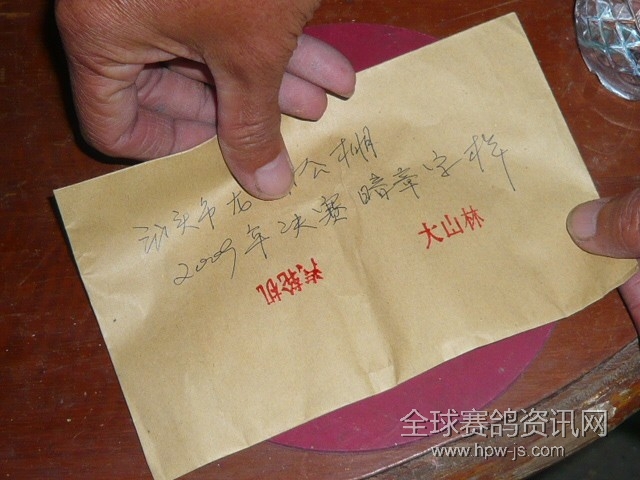 汕头市龙 公棚
2009年决赛暗章字样
大山林
汽轮机
全球赛鸽资讯网
www.hpw-js.com